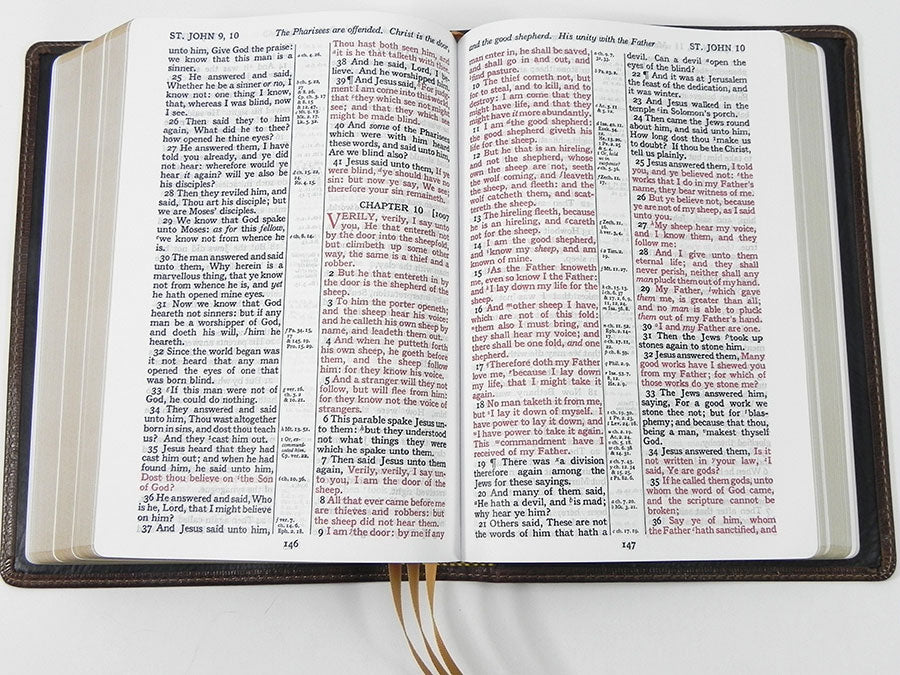 ST. JOHN 9, 10
The Pharisees are offended. Christ is the door,
unto him, Give God the praise:
we know that this man is a
sinner.
25 He answered and said,
Whether he be a sinner or no, I
know not: one thing I know,
that, whereas I was blind, now
I see.
26 Then said they to him
again, What did he to thee?
how opened he thine eyes?
27 He answered them, I have
told you already, and ye did
not hear: wherefore would ye
hear it again? will ye also be
his disciples?
28 Then they reviled him, and
said, Thou art his disciple; but
we are Moses' disciples.
29 We know that God spake
unto Moses: as for this fellow,
we know not from whence he
is.
30 The man answered and said
unto them, Why herein is a
marvellous thing, that ye know
not from whence he is, and yet
he hath opened mine eyes.
31 Now we know that God
heareth not sinners: but if any
man be a worshipper of God,
and doeth his will, him he
heareth.
32 Since the world began was
it not heard that any man
opened the eyes of one that
was born blind.
33 If this man were not of
God, he could do nothing.
34 They answered and said
unto him, Thou wast altogether
born in sins, and dost thou teach
us? And they cast him out.
35 Jesus heard that they had
cast him out; and when he had
found him, he said unto him,
Dost thou believe on the Son
of God?
36 He answered and said, Who
is he, Lord, that I might believe
on him?
37 And Jesus said unto him,
Thou hast both seen him, and
it is he that talketh with thee.
38 And he said, Lord, I be-
lieve. And he worshipped him.
39 ¶ And Jesus said, For judg-
ment I am come into this world,
that they which see not might
see; and that they which see
might be made blind.
40 And some of the Pharisees
which were with him heard
these words, and said unto him,
Are we blind also?
41 Jesus said unto them, If ye
were blind, ye should have no
sin: but now ye say, We see;
therefore your sin remaineth.
CHAPTER 10 [1007
VERILY, verily, I say unto
you, He that entereth not
by the door into the sheepfold,
but climbeth up some other
way, the same is a thief and a
robber.
2 But he that entereth in by
the door is the shepherd of the
sheep.
3 To him the porter openeth;
and the sheep hear his voice:
and he calleth his own sheep by
name, and leadeth them out.
4 And when he putteth forth
his own sheep, he goeth before
them, and the sheep follow
him: for they know his voice.
5 And a stranger will they not
follow, but will flee from him:
for they know not the voice of
strangers.
6 This parable spake Jesus un-
to them: but they understood
not what things they were
which he spake unto them.
7 Then said Jesus unto them
again, Verily, verily, I say un-
to you, I am the door of the
sheep.
8 All that ever came before me
are thieves and robbers: but
the sheep did not hear them.
9 I am the door: by me if any
146
and the good shepherd. His unity with the Father
ST. JOHN 10
man enter in, he shall be saved,
and shall go in and out, and
find pasture.
10 The thief cometh not, but
for to steal, and to kill, and to
destroy: I am come that they
might have life, and that they
might have it more abundantly.
11 I am the good shepherd:
the good shepherd giveth his
life for the sheep.
12 But he that is an hireling,
and not the shepherd, whose
own the sheep are not, seeth
the wolf coming, and leaveth
the sheep, and fleeth: and the
wolf catcheth them, and scat-
tereth the sheep.
13 The hireling fleeth, because
he is an hireling, and careth
not for the sheep.
14 I am the good shepherd,
and know my sheep, and am
known of mine.
15 As the Father knoweth
me, even so know I the Father:
and I lay down my life for the
sheep.
16 And other sheep I have,
which are not of this fold:
them also I must bring, and
they shall hear my voice; and
there shall be one fold, and one
shepherd.
17 Therefore doth my Father
love me, because I lay down
my life, that I might take it
again.
18 No man taketh it from me,
but I lay it down of myself. I
have power to lay it down, and
I have power to take it again.
This commandment have I
received of my Father.
19 ¶ There was a division
therefore again among the
Jews for these sayings.
20 And many of them said,
He hath a devil, and is mad;
why hear ye him?
21 Others said, These are not
the words of him that hath a
devil. Can a devil open the
eyes of the blind?
22 ¶ And it was at Jerusalem
the feast of the dedication, and
it was winter.
23 And Jesus walked in the
temple in Solomon's porch.
24 Then came the Jews round
about him, and said unto him,
How long dost thou make us
to doubt? If thou be the Christ,
tell us plainly.
25 Jesus answered them, I told
you, and ye believed not: the
works that I do in my Father's
name, they bear witness of me.
26 But ye believe not, because
ye are not of my sheep, as I said
unto you.
27 My sheep hear my voice,
and I know them, and they
follow me:
28 And I give unto them
eternal life; and they shall
never perish, neither shall any
man pluck them out of my hand.
29 My Father, which gave
them me, is greater than all;
and no man is able to pluck
them out of my Father's hand.
30 I and my Father are one.
31 Then the Jews took up
stones again to stone him.
32 Jesus answered them, Many
good works have I shewed you
from my Father; for which of
those works do ye stone me?
33 The Jews answered him,
saying, For a good work we
stone thee not; but for blas-
phemy; and because that thou,
being a man, makest thyself
God.
34 Jesus answered them, Is it
not written in your law, I
said, Ye are gods?
35 If he called them gods, unto
whom the word of God came,
and the scripture cannot be
broken;
36 Say ye of him, whom
the Father hath sanctified, and
147